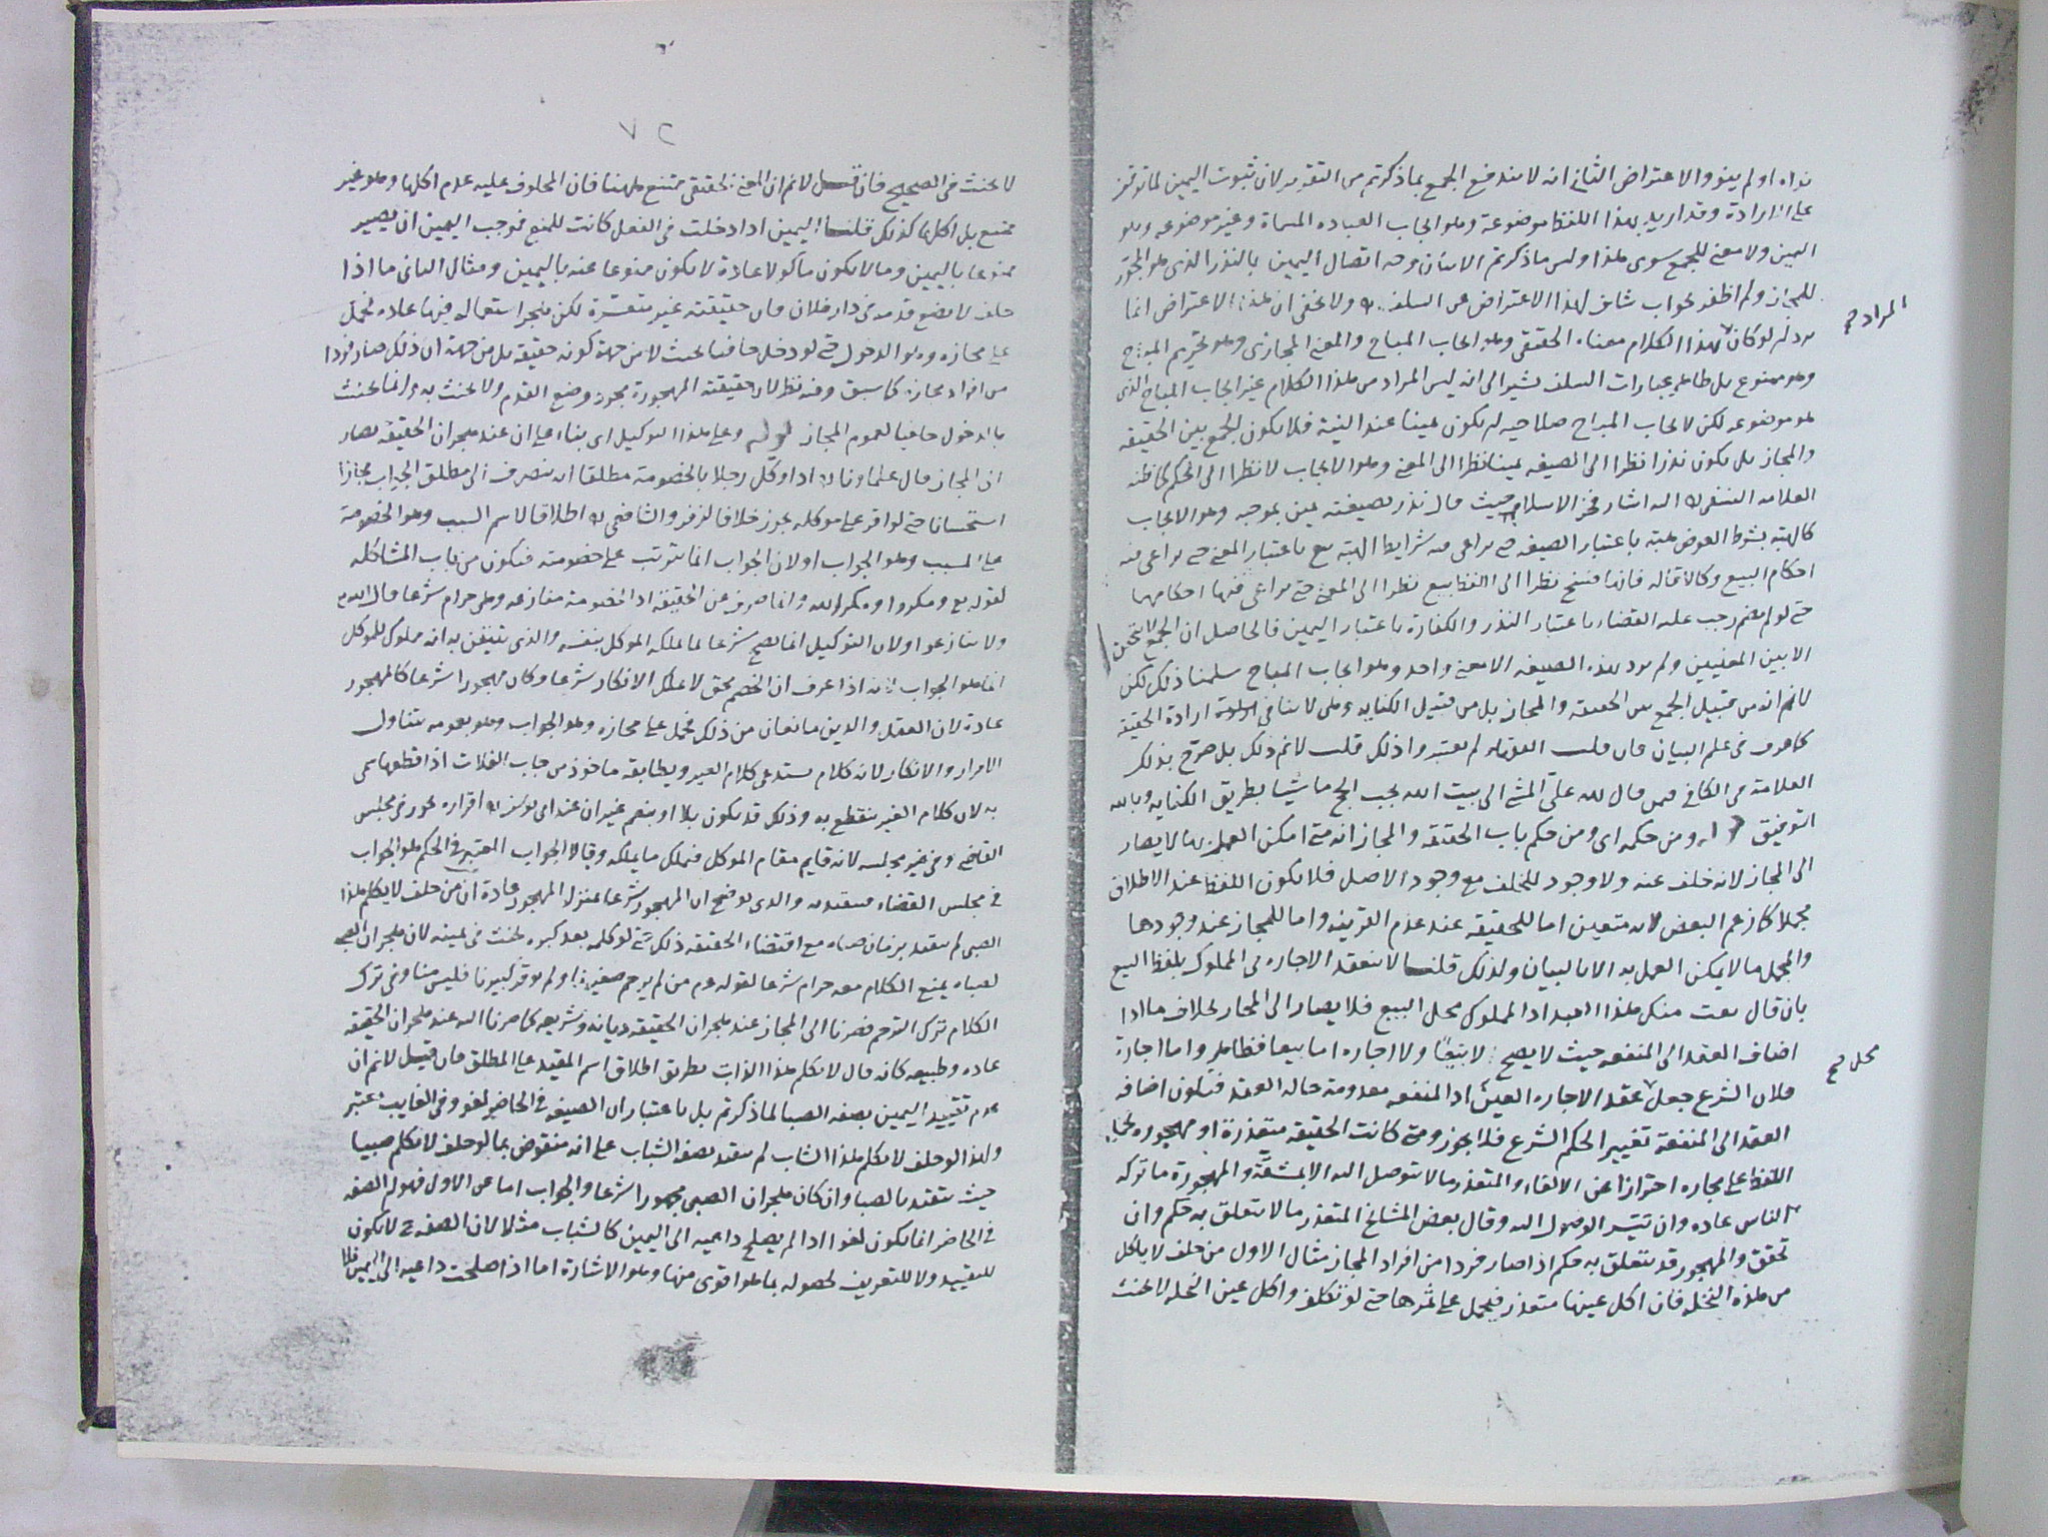 نواه او لم ينو والاعتراض الثاني انه لا يندفع الجمع بما ذكرتم من التقدير لان ثبوت اليمين لما توقف
على الارادة وقد اريد بهذا اللفظ موضوعه وهو ايجاب العباده المسماة وغير موضوعه وهو
اليمين ولا معنى للجمع سوى هذا وليس ما ذكرتم الا بيان وجه اتصال اليمين بالنذر الذي هو المجوز
للمجاز ولم اظفر بجواب شاف لهذا الاعتراض عن السلف ولا يخفى ان هذا الاعتراض انما
يرد ان لو كان المراد بهذا الكلام معناه الحقيقي وهو ايجاب المباح والمعنى المجازي وهو تحريم المباح
وهو ممنوع بل ظاهر عبارات السلف يشير الى انه ليس المراد من هذا الكلام غير ايجاب المباح الذي
هو موضوعه لكن لايجاب المباح صلاحيه ان يكون يمينا عند النية فلا يكون الجمع بين الحقيقه
والمجاز بل يكون نذرا نظرا الى الصيغه يمينا نظرا الى المعنى وهو الايجاب لا نظرا الى الحكم كما ظنه
العلامه النسفي اليه اشار فخر الاسلام حيث قال نذر بصيغته يمين بموجبه وهو الايجاب
كالهبه بشرط العوض هبة باعتبار الصيغه حتى يراعى فيه شرايط الهبه بيع باعتبار المعنى حتى يراعى فيه
احكام البيع وكالاقاله فانها فسخ نظرا الى اللفظ بيع نظرا الى المعنى حتى يراعى فيها احكامهما
حتى لو لم يصم يجب عليه القضاء باعتبار النذر والكفارة باعتبار اليمين فالحاصل ان الجمع لا يتحقق
الا بين المعنيين ولم يرد بهذه الصيغه الا معنى واحد وهو ايجاب المباح سلمنا ذلك لكن
لا نم انه من قبيل الجمع بين الحقيقه والمجاز بل من قبيل الكنايه وهي لا تنافي ارادة الحقيقة
كما عرف في علم البيان فان قلت الفقهاء لم يعتبروا ذلك قلت لا نم ذلك بل صرح بذلك
العلامة في الكافي فيمن قال لله علىّ المشي الى بيت الله يجب الحج ماشيا بطريق الكنايه وبالله
التوفيق قوله ومن حكمه اي ومن حكم باب الحقيقة والمجاز انه متى امكن العمل بها لا يصار
الى المجاز لانه خلف عنه ولا وجود للخلف مع وجود الاصل فلا يكون اللفظ عند الاطلاق
مجملا كما زعم البعض لانه متعين اما للحقيقة عند عدم القرينه واما للمجاز عند وجودها
والمجمل ما لا يمكن العمل به الا بالبيان ولذلك قلنا لا تنعقد الاجاره في المملوك بلفظ البيع
بان قال بعت منك هذا العبد اذ المملوك محل البيع فلا يصار الى المجاز بخلاف ما اذا
اضاف العقد الى المنفعه حيث لا يصح لا بيعًا ولا اجاره اما بيعا فظاهر واما اجارة
فلان الشرع جعل محل عقد الاجاره العين اذ المنفعه معدومة حاله العقد فيكون اضافه
العقد الى المنفعة تغييرا لحكم الشرع فلا يجوز ومتى كانت الحقيقه متعذرة او مهجوره يحمل
اللفظ على مجازه احترازا عن الالغاء والمتعذر ما لا يتوصل اليه الا بمشقّة والمهجورة ما تركه
الناس عاده وان تيسّر الوصول اليه وقال بعض المشايخ المتعذر ما لا يتعلق به حكم وان
تحقق والمهجور قد يتعلق به حكم اذا صار فردا من افراد المجاز مثال الاول من حلف لا ياكل
من هذه النخله فان اكل عينها متعذر فيحمل على ثمرها حتى لو تكلف واكل عين النخله لا يحنث
المراد صح
محل صح
٧٢
لا يحنث في الصحيح فان قيل لا نم ان المعنى الحقيقي ممتنع ههنا فان المحلوف عليه عدم اكلها وهو غير
ممتنع بل اكلها كذلك قلنا اليمين اذا دخلت في الفعل كانت للمنع فموجب اليمين ان يصير
ممنوعا باليمين وما لا يكون ماكولا عادة لا يكون ممنوعا عنه باليمين ومثال الثاني ما اذا
حلف لا يضع قدمه في دار فلان فان حقيقته غير متعسّرة لكن هجر استعماله فيها عاده فحمل
على مجازه وهو الدخول حتى لو دخل حافيا يحنث لا من جهة كونه حقيقة بل من جهة ان ذلك صار فردا
من افراد مجازه كما سبق وفيه نظر لان حقيقته المهجورة مجرد وضع القدم ولا يحنث به وانما يحنث
بالدخول حافيا لعموم المجاز قوله وعلى هذا التوكيل اى بناء على ان عند هجران الحقيقه يصار
الى المجاز قال علماؤنا اذا وكّل رجلا بالخصومة مطلقا انه ينصرف الى مطلق الجواب مجازا
استحسانا حتى لو اقر على موكله يجوز خلافا لزفر والشافعي اطلاقا لاسم السبب وهو الخصومة
على المسبب وهو الجواب او لان الجواب انما يترتب على خصومته فيكون من باب المشاكله
لقوله تع ومكروا ومكر الله وانما صرف عن الحقيقه اذ الخصومة منازعه وهي حرام شرعا قال الله تع
ولا تنازعوا ولان التوكيل انما يصح شرعا بما يملكه الموكل بنفسه والذي يتيقن به انه مملوك للموكل
انما هو الجواب لانه اذا عرف ان الخصم محق لا يملك الانكار شرعا وكان مهجورا شرعا كالمهجور
عادة لان العقل والدين مانعان من ذلك فحمل على مجازه وهو الجواب وهو بعمومه يتناول
الاقرار والانكار لانه كلام يستدعى كلام الغير ويطابقه ماخوذ من جاب الفلاة اذا قطعها سمى
به لان كلام الغير ينقطع به وذلك قد يكون بلا او بنعم غير ان عند ابي يوسف اقراره يجوز في مجلس
القاضى وفي غير مجلسه لانه قايم مقام الموكل فيملك ما يملكه وقالا الجواب المعتبر في الحكم هو الجواب
في مجلس القضاء فيتقيد به والذى يوضح ان المهجور شرعا بمنزلة المهجور عادة ان من حلف لا يكلم هذا
الصبى لم يتقيد بزمان صباه مع اقتضاء الحقيقه ذلك حتى لو كلمه بعد كبره يحنث في يمينه لان هجران الصبي
لصباه بمنع الكلام معه حرام شرعا لقوله عم من لم يرحم صغيرنا ولم يوقر كبيرنا فليس منا وفي ترك
الكلام ترك الترحم فصرنا الى المجاز عند هجران الحقيقه ديانه وشريعه كما صرنا اليه عند هجران الحقيقه
عاده وطبيعه كانه قال لا يكلم هذا الذات بطريق اطلاق اسم المقيد على المطلق فان قيل لا نم ان
عدم تقييد اليمين بصفه الصبا لما ذكرتم بل باعتبار ان الصيغه في الحاضر لغو وفي الغايب تعتبر
ولهذا لو حلف لا يكلم هذا الشاب لم يتقيد بصفه الشباب على انه منقوض بما لو حلف لا يكلم صبيا
حيث يتقيد بالصبا وان كان هجران الصبي مهجورا شرعا والجواب اما عن الاول فهو ان الصفه
في الحاضر انما يكون لغوا اذا لم يصلح داعيه الى اليمين كالشباب مثلا لان الصفه ح لا يكون
للتقييد ولا للتعريف لحصوله بما هو اقوى منها وهو الاشارة اما اذا صلحت داعيه الى اليمين فلا